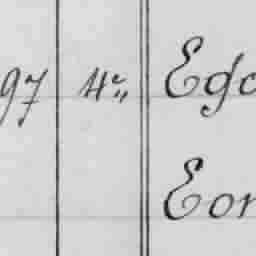 97 4e„ Ego
Eon